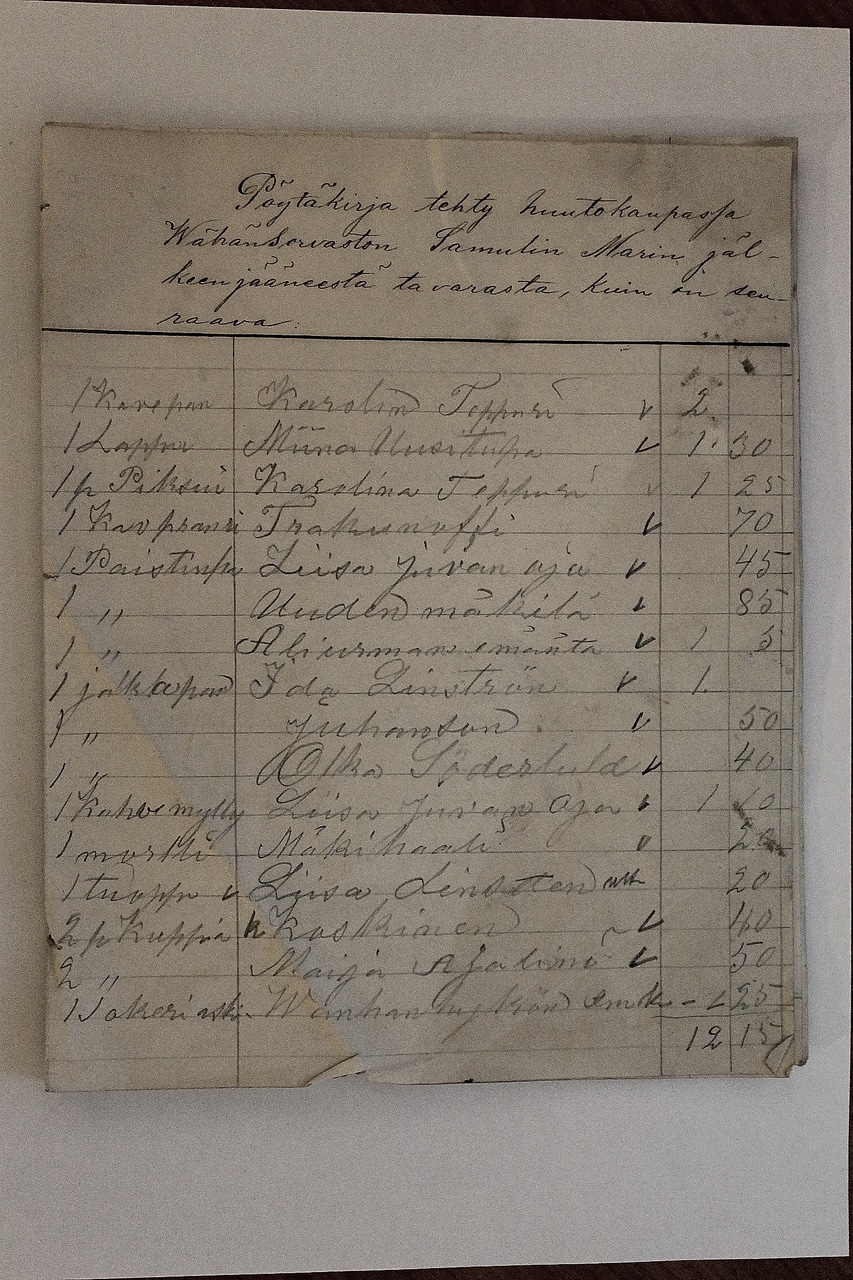 Pöytäkirja tehty huutokaupassa
WähänSorvaston Samulin Marin jäl-
keenjääneestä tavarasta, kuin on seu-
raava:
1 Kavepan Karolin Teppuri v 2.
1 Lappu Miina Uusitupa v 1. 30
1 p Piksui Karolina Teppuri v 1 25
1 Kavpranni Trakunoffi v 70
1 Paistinpa Liisa Juvan oja v 45
1 „ Uuden mäkilä v 85
1 „ emänta v 1 5
1 jalkapad Ida Linström v 1.
1 „ Juhanson v 50
1 „ Olka Söderluld v 40
1 Kahvemylly Liisa Juvan Oja v 1 10
1 mortli Mäkihaali v 20
1 tuoppi v Liisa Linsten 20
2 p Kuppia k Koskinen v 40
2 „ Maija Ajalimi v 50
1 Sokeri aski Wanhan - 1 25
12 15